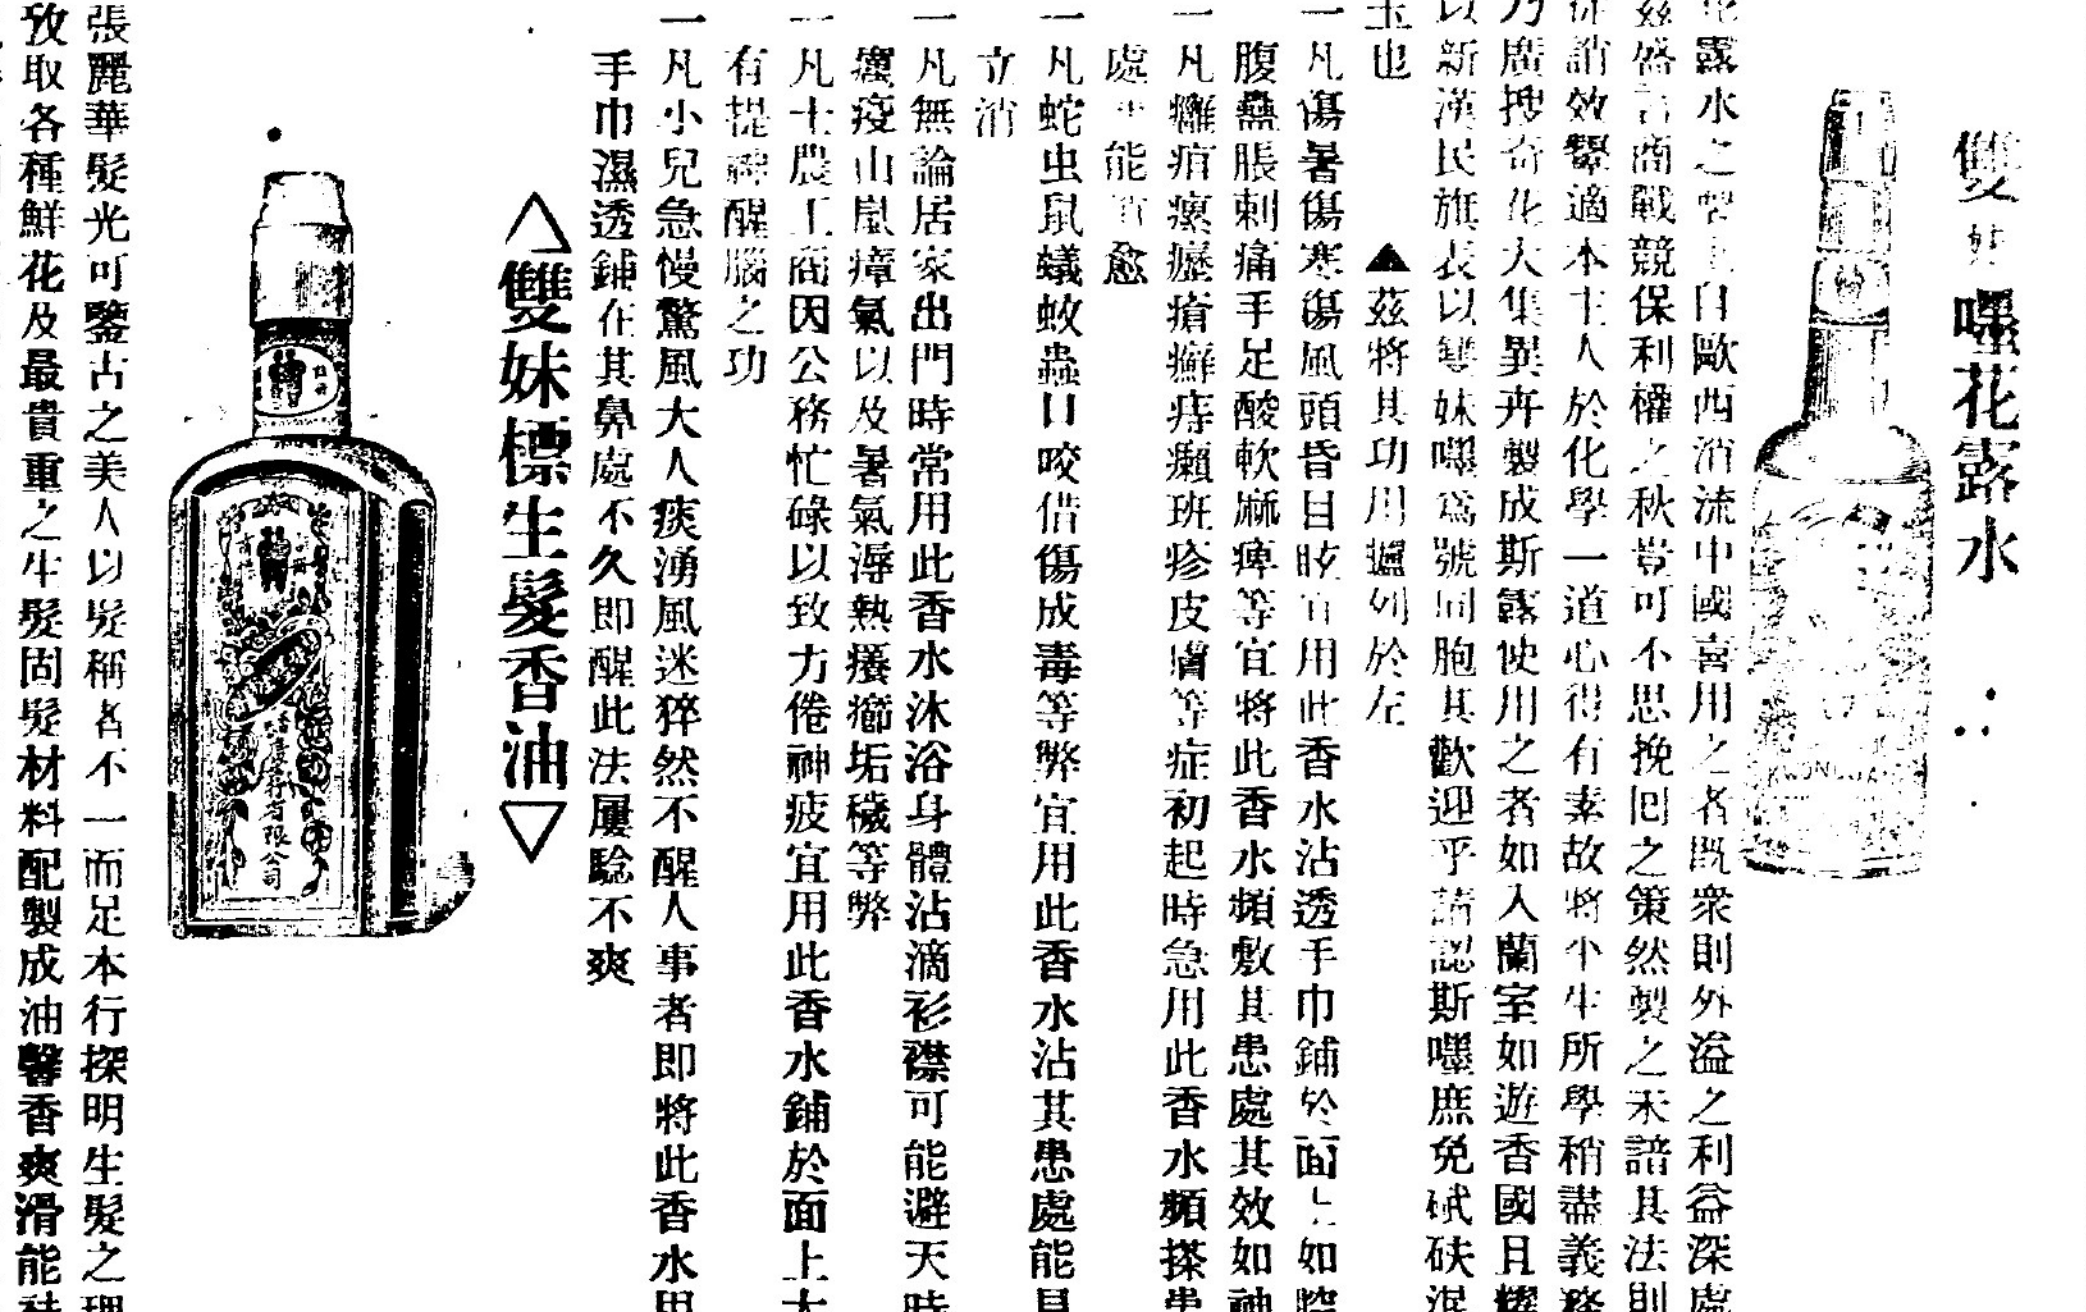 雙妹嚜花露水
KWONG
花露水之製自歐西消流中國喜用之者既衆則外溢之利益深處
茲盛言商戰競保利權之秋豈可不思挽回之策然製之未諳其法則
効顰適本主人於化學一道心得有素故將半生所學稍盡義務
乃廣搜奇花大集異卉製成斯露使用之者如入蘭室如遊香國且
以新漢民旗表以雙妹嚜爲號同胞其歡迎乎請認斯嚜庶免碔砆混
玉也
▲茲將其功用臚列於左
一凡傷暑傷寒傷風頭昏目眩宜用此香水沾透手巾鋪於面上如
腹蠱脹刺痛手足酸軟麻痺等宜將此香水頻敷其患處其效如神
一凡癰疽瘰癧瘡癬痔癩班疹皮膚等症初起時急用此香水頻搽患
處能愈
一凡蛇虫鼠蟻蚊蟲口咬借傷成毒等弊宜用此香水沾其患處能見
立消
一凡無論居家出門時常用此香水沐浴身體沾滴衫襟可能避天時
癘疫山嵐瘴氣以及暑氣溽熱癢癤垢穢等弊
一凡士農工商因公務忙碌以致力倦神疲宜用此香水鋪於面上大
有提神醒腦之功
一凡小兒急慢驚風大人痰湧風迷猝然不醒人事者即將此香水用
手巾濕透鋪在其鼻處不久即醒此法屢騐不爽
△雙妹標生髮香油▽
行有限公司
張麗華髮光可鑒古之美人以髮稱者不一而足本行探明生髮之理
攷取各種鮮花及最貴重之生髮固髮材料配製成油馨香爽滑能